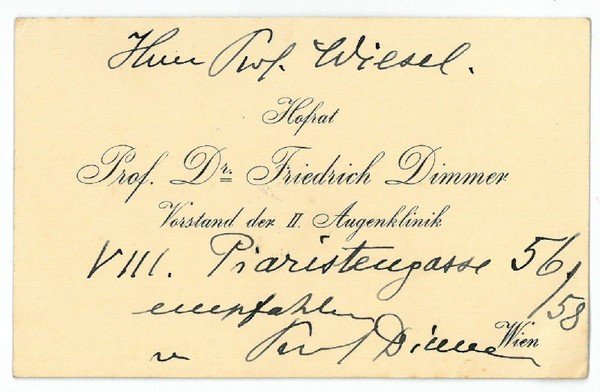 Herrn Prof. Wiesel.
Hofrat
Prof. Dr. Friedrich Dimmer
Vorstand der II. Augenklinik
VIII. Piaristengasse 56/58
empfohlen
Wien
v Prof Dimmer